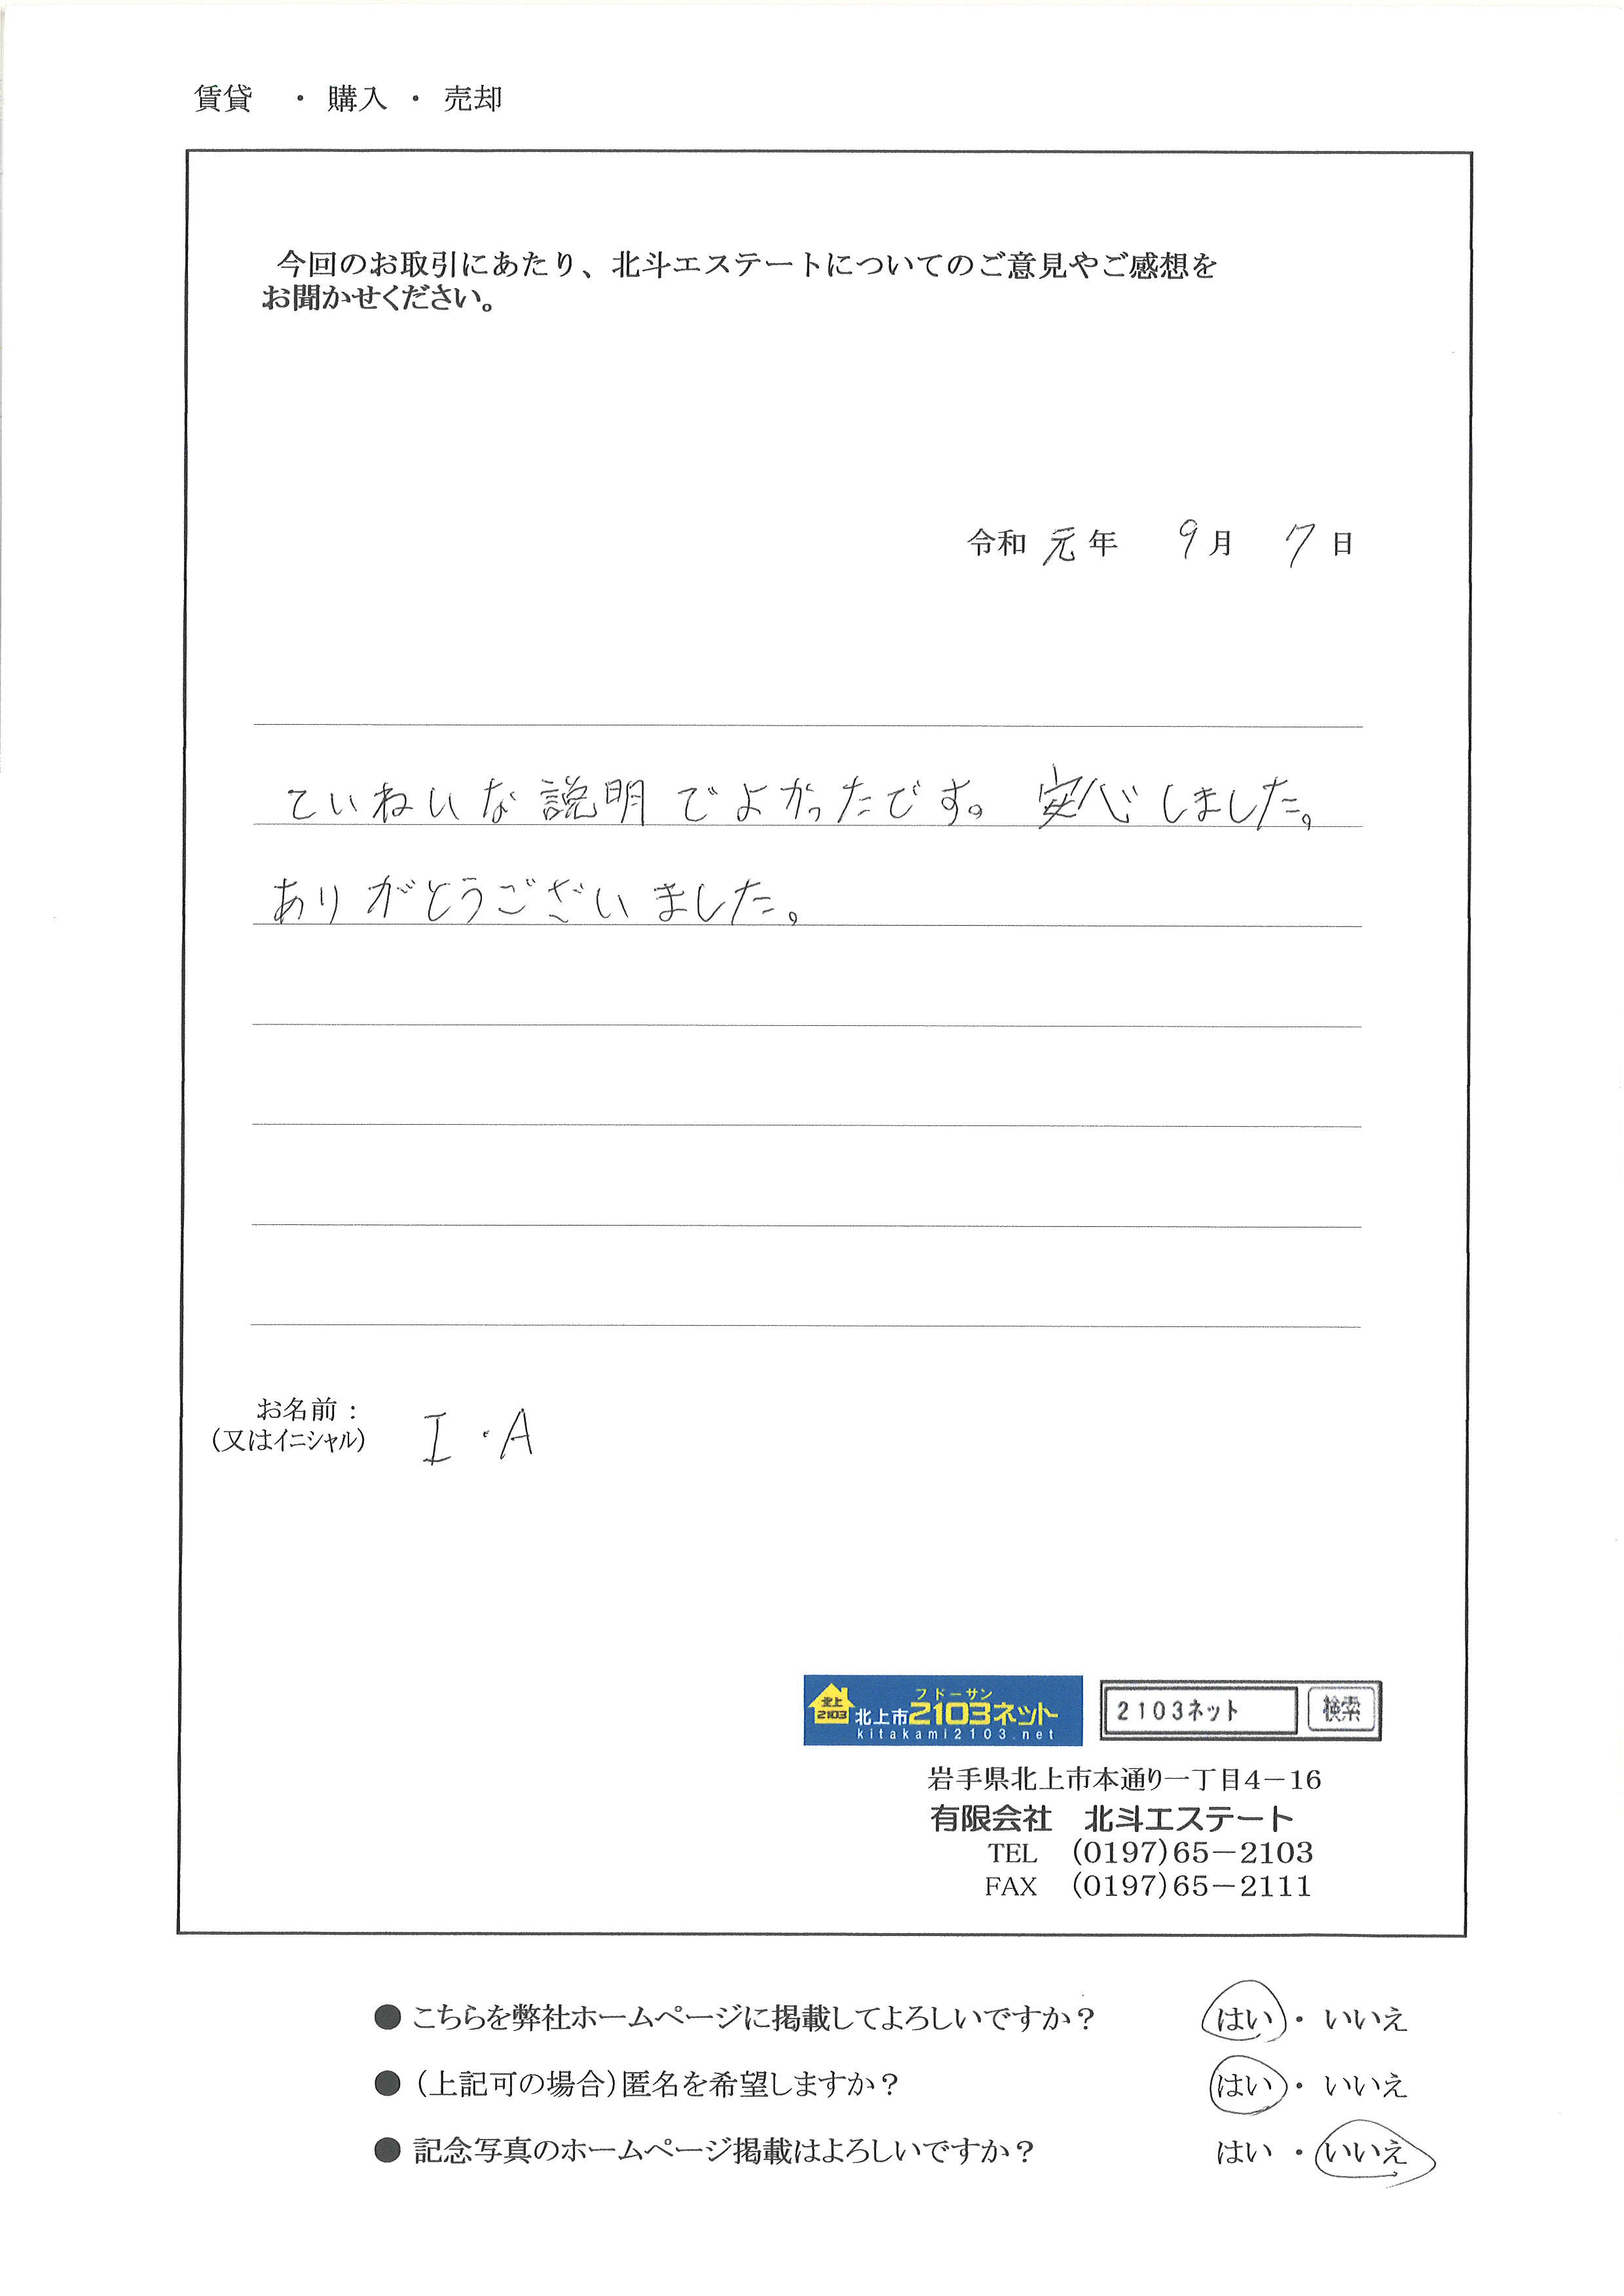 賃貸 ・ 購入 ・ 売却
今回のお取引にあたり、北斗エステートについてのご意見やご感想を
お聞かせください。
令和 元 年 9 月 7 日
ていねいな説明でよかったです。安心しました。
ありがとうございました。
お名前：
（又はイニシャル） I・A
フドーサン
北上 2103 北上市2103ネット
kitakami2103.net
2103ネット 検索
岩手県北上市本通り一丁目4－16
有限会社 北斗エステート
TEL (0197)65－2103
FAX (0197)65－2111
● こちらを弊社ホームページに掲載してよろしいですか？ はい ・ いいえ
● （上記可の場合）匿名を希望しますか？ はい ・ いいえ
● 記念写真のホームページ掲載はよろしいですか？ はい ・ いいえ